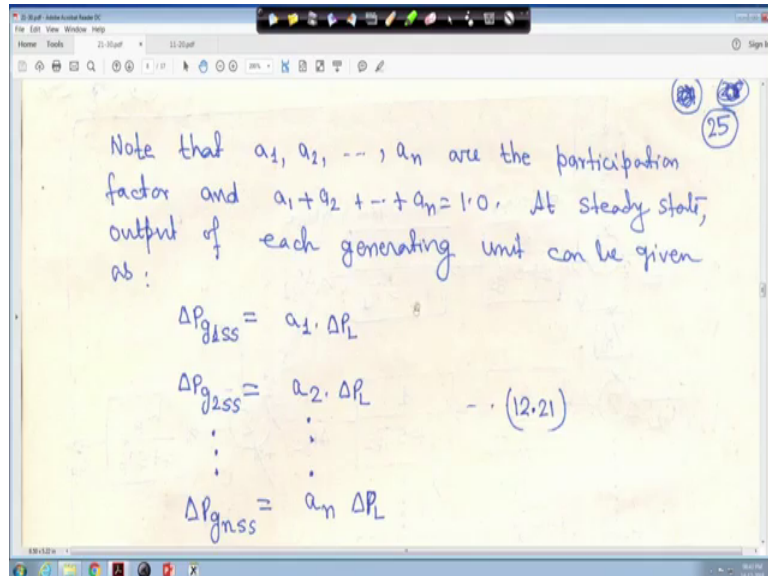 21-30.pdf - Adobe Acrobat Reader DC
File Edit View Window Help
Home Tools 21-30.pdf × 11-20.pdf Sign In
/ 17
25
Note that a1, a2, ---, an are the participation
factor and a1 + a2 + -- + an = 1.0. At steady state,
output of each generating unit can be given
as :
ΔPg1ss = a1. ΔPL
ΔPg2ss = a2. ΔPL -- . (12.21)
ΔPgnss = an ΔPL